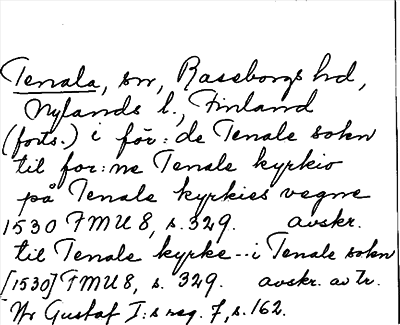 Tenala, sn, Raseborgs hd,
Nylands l., Finland
(forts.) i för: de Tenale sokn
til for:ne Tenale kyrkio
på Tenale kyrkies vegne
1530 FMU 8, s. 329. avskr.
til Tenale kyrke -- i Tenale sokn
[1530] FMU 8, s. 329. avskr. av tr.
Gustaf I:s reg. 7, s. 162.